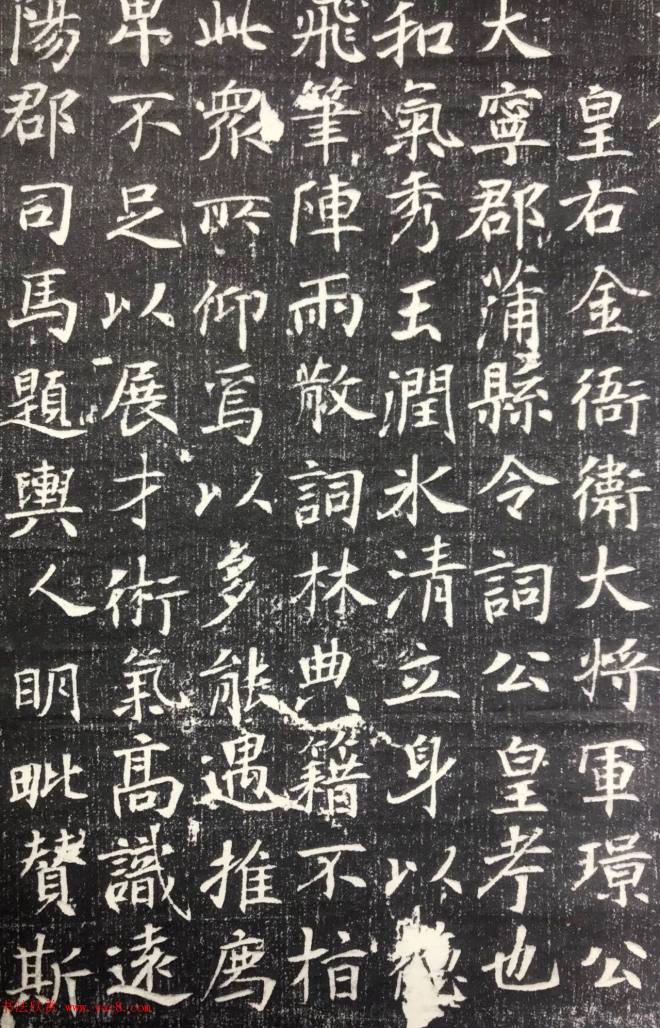 皇右金衙衛大将軍璟公
大寧郡蒲縣令詞公皇考也
和氣秀玉潤氷清立身以德
飛筆陣雨散詞林典籍不
此衆所仰焉以多能遇推
卑不足以展才術氣高識遠
陽郡司馬題輿人明毗賛斯
书法欣赏 www.yac8.com